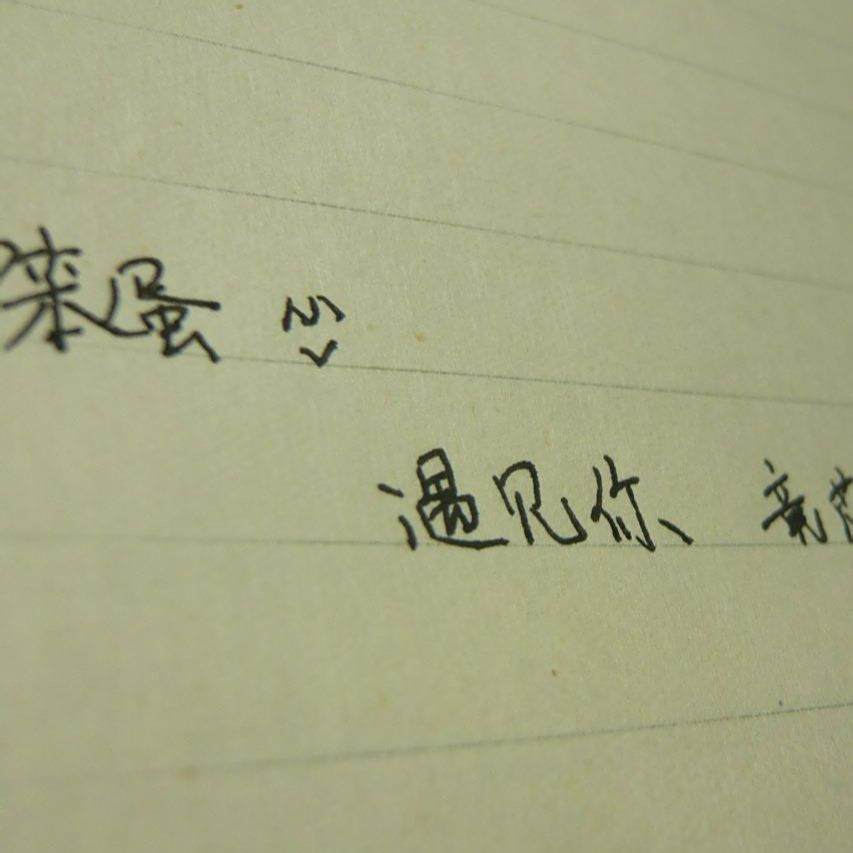 笨蛋
遇见你、竟